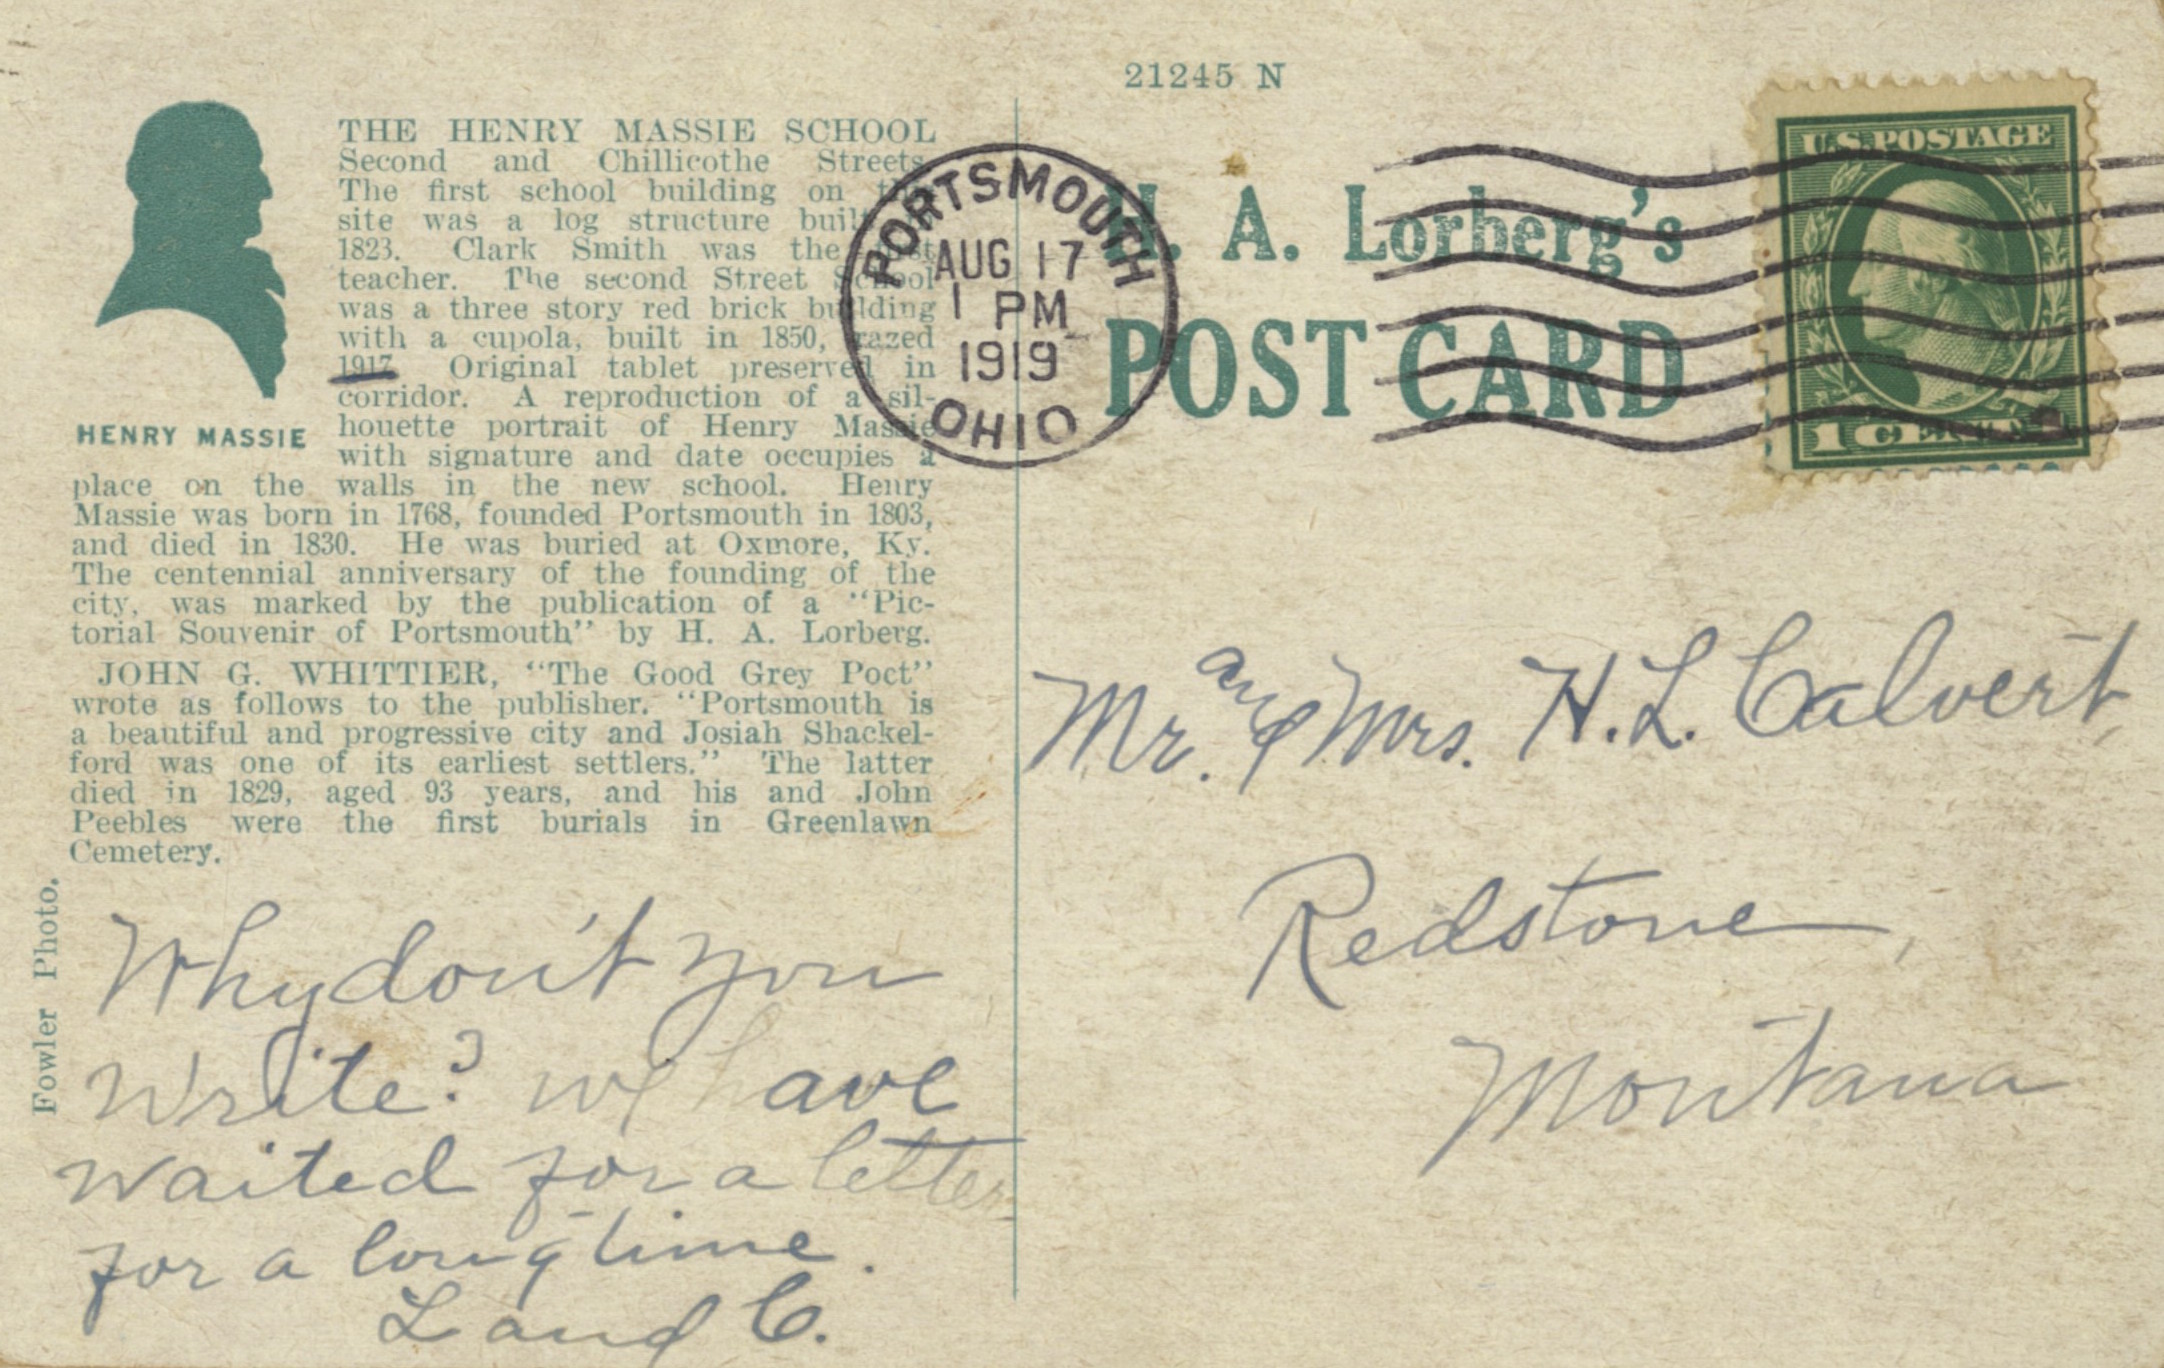 21245 N
THE HENRY MASSIE SCHOOL
Second and Chillicothe Streets.
The first school building on this
site was a log structure built
1823. Clark Smith was the first
teacher. The second Street School
was a three story red brick building
with a cupola, built in 1850, razed
1917 Original tablet preserved in
corridor. A reproduction of a sil-
houette portrait of Henry Massie
with signature and date occupies a
place on the walls in the new school. Henry
Massie was born in 1768, founded Portsmouth in 1803,
and died in 1830. He was buried at Oxmore, Ky.
The centennial anniversary of the founding of the
city, was marked by the publication of a "Pic-
torial Souvenir of Portsmouth" by H. A. Lorberg.
HENRY MASSIE
JOHN G. WHITTIER, "The Good Grey Poet"
wrote as follows to the publisher. "Portsmouth is
a beautiful and progressive city and Josiah Shackel-
ford was one of its earliest settlers." The latter
died in 1829, aged 93 years, and his and John
Peebles were the first burials in Greenlawn
Cemetery.
Fowler Photo.
Why don't you
write? we have
waited for a letter
for a long time.
L and C.
PORTSMOUTH
AUG 17
1 PM
1919
OHIO
H. A. Lorberg's
POST CARD
U.S. POSTAGE
1 CENT 1
Mr. and Mrs. H. L. Calvert,
Redstone,
Montana